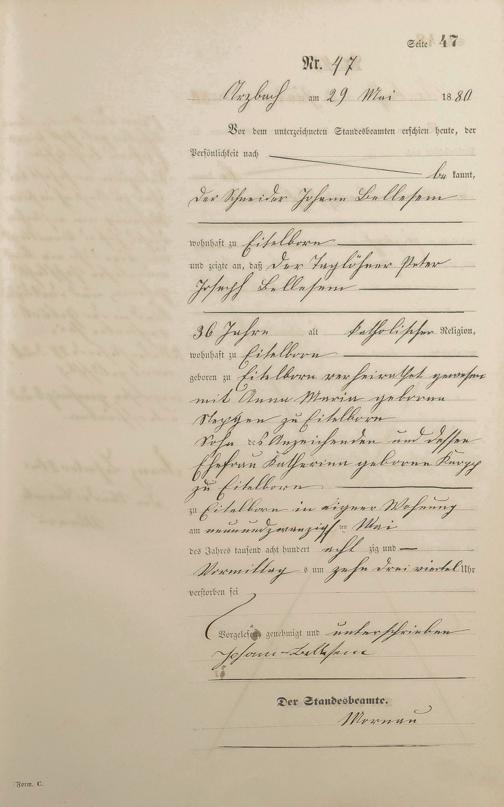 Seite 47
Nr. 47
Arzbach am 29 Mai 1880
Vor dem unterzeichneten Standesbeamten erschien heute, der
Persönlichkeit nach
be kannt,
der Schneider Johann Bellesem
wohnhaft zu Eitelborn
und zeigte an, daß der Taglöhner Peter
Joseph Bellesem
36 Jahre alt katholischer Religion,
wohnhaft zu Eitelborn
geboren zu Eitelborn verheirathet gewesen
mit Anna Maria geborene
zu Eitelborn
Sohn des Anzeigenden und dessen
Ehefrau Katharina geborene Knopp
zu Eitelborn
zu Eitelborn in eigner Wohnung
am neunundzwanzigsten Mai
des Jahres tausend acht hundert acht zig und
Vormittags um zehn drei viertel Uhr
verstorben sei
Vorgelesen, genehmigt und unterschrieben
Johann Bellesem
Der Standesbeamte.
Mornau
Form. C.